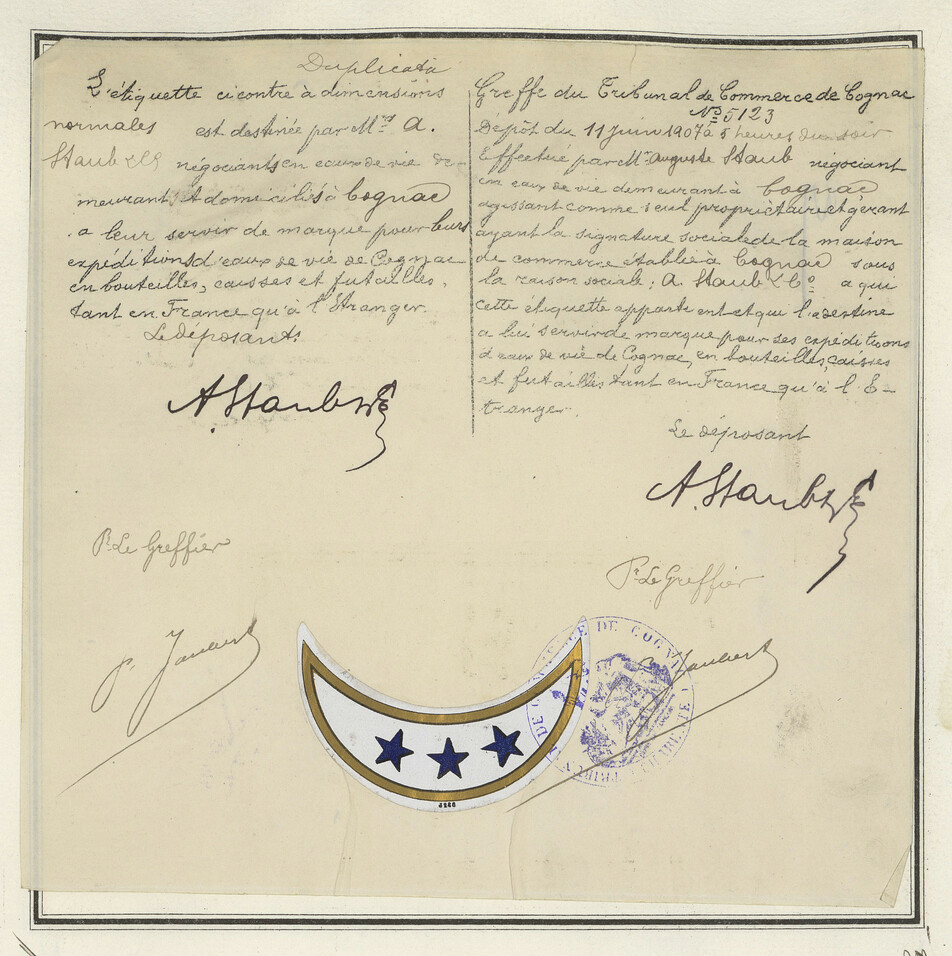 Duplicata
L'étiquette ci contre à dimensions
normales est destinée par Mrs A.
Staub & Co négociants en eaux de vie de-
meurant et domiciliés à Cognac
a leur servir de marque pour leurs
expeditions d'eaux de vie de Cognac
en bouteilles, caisses et futailles,
tant en France qu'à l'Etranger.
Le déposant.
A. Staub & Co
Pr Le Greffier
P. Jaubert
Greffe du Tribunal de Commerce de Cognac
No 5123
Dépôt du 11 Juin 1907 à 5 heures du soir
Effectué par Mr Auguste Staub négociant
en eaux de vie demeurant à Cognac
agissant comme seul propriètaire et gérant
ayant la signature sociale de la maison
de commerce établie à Cognac sous
la raison sociale: A. Staub & Co a qui
cette étiquette appartient et qui l'a destine
a lui servir de marque pour ses expeditions
d'eaux de vie de Cognac, en bouteilles, caisses
et futailles tant en France qu'à l'E-
tranger.
Le déposant
A. Staub & Co
Pr Le Greffier
Jaubert
DE COGNAC
TRIBUNAL DE
CHARENTE